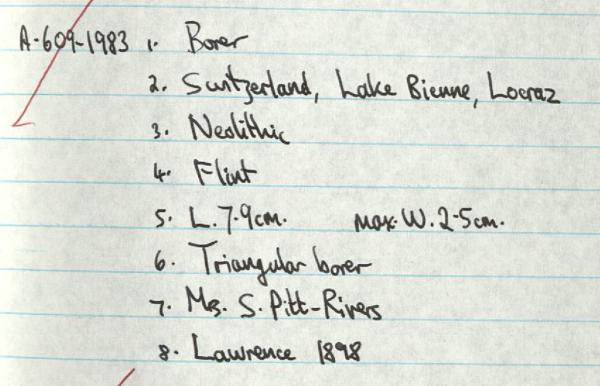 A·609-1983 1. Borer
2. Switzerland, Lake Bienne, Locraz
3. Neolithic
4. Flint
5. L. 7·9cm. max. W. 2·5cm.
6. Triangular borer
7. Ms. S. Pitt-Rivers
8. Lawrence 1898